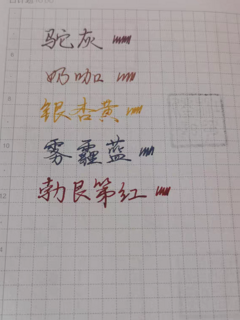 驼灰
奶咖
银杏黄
雾霾蓝
勃艮第红